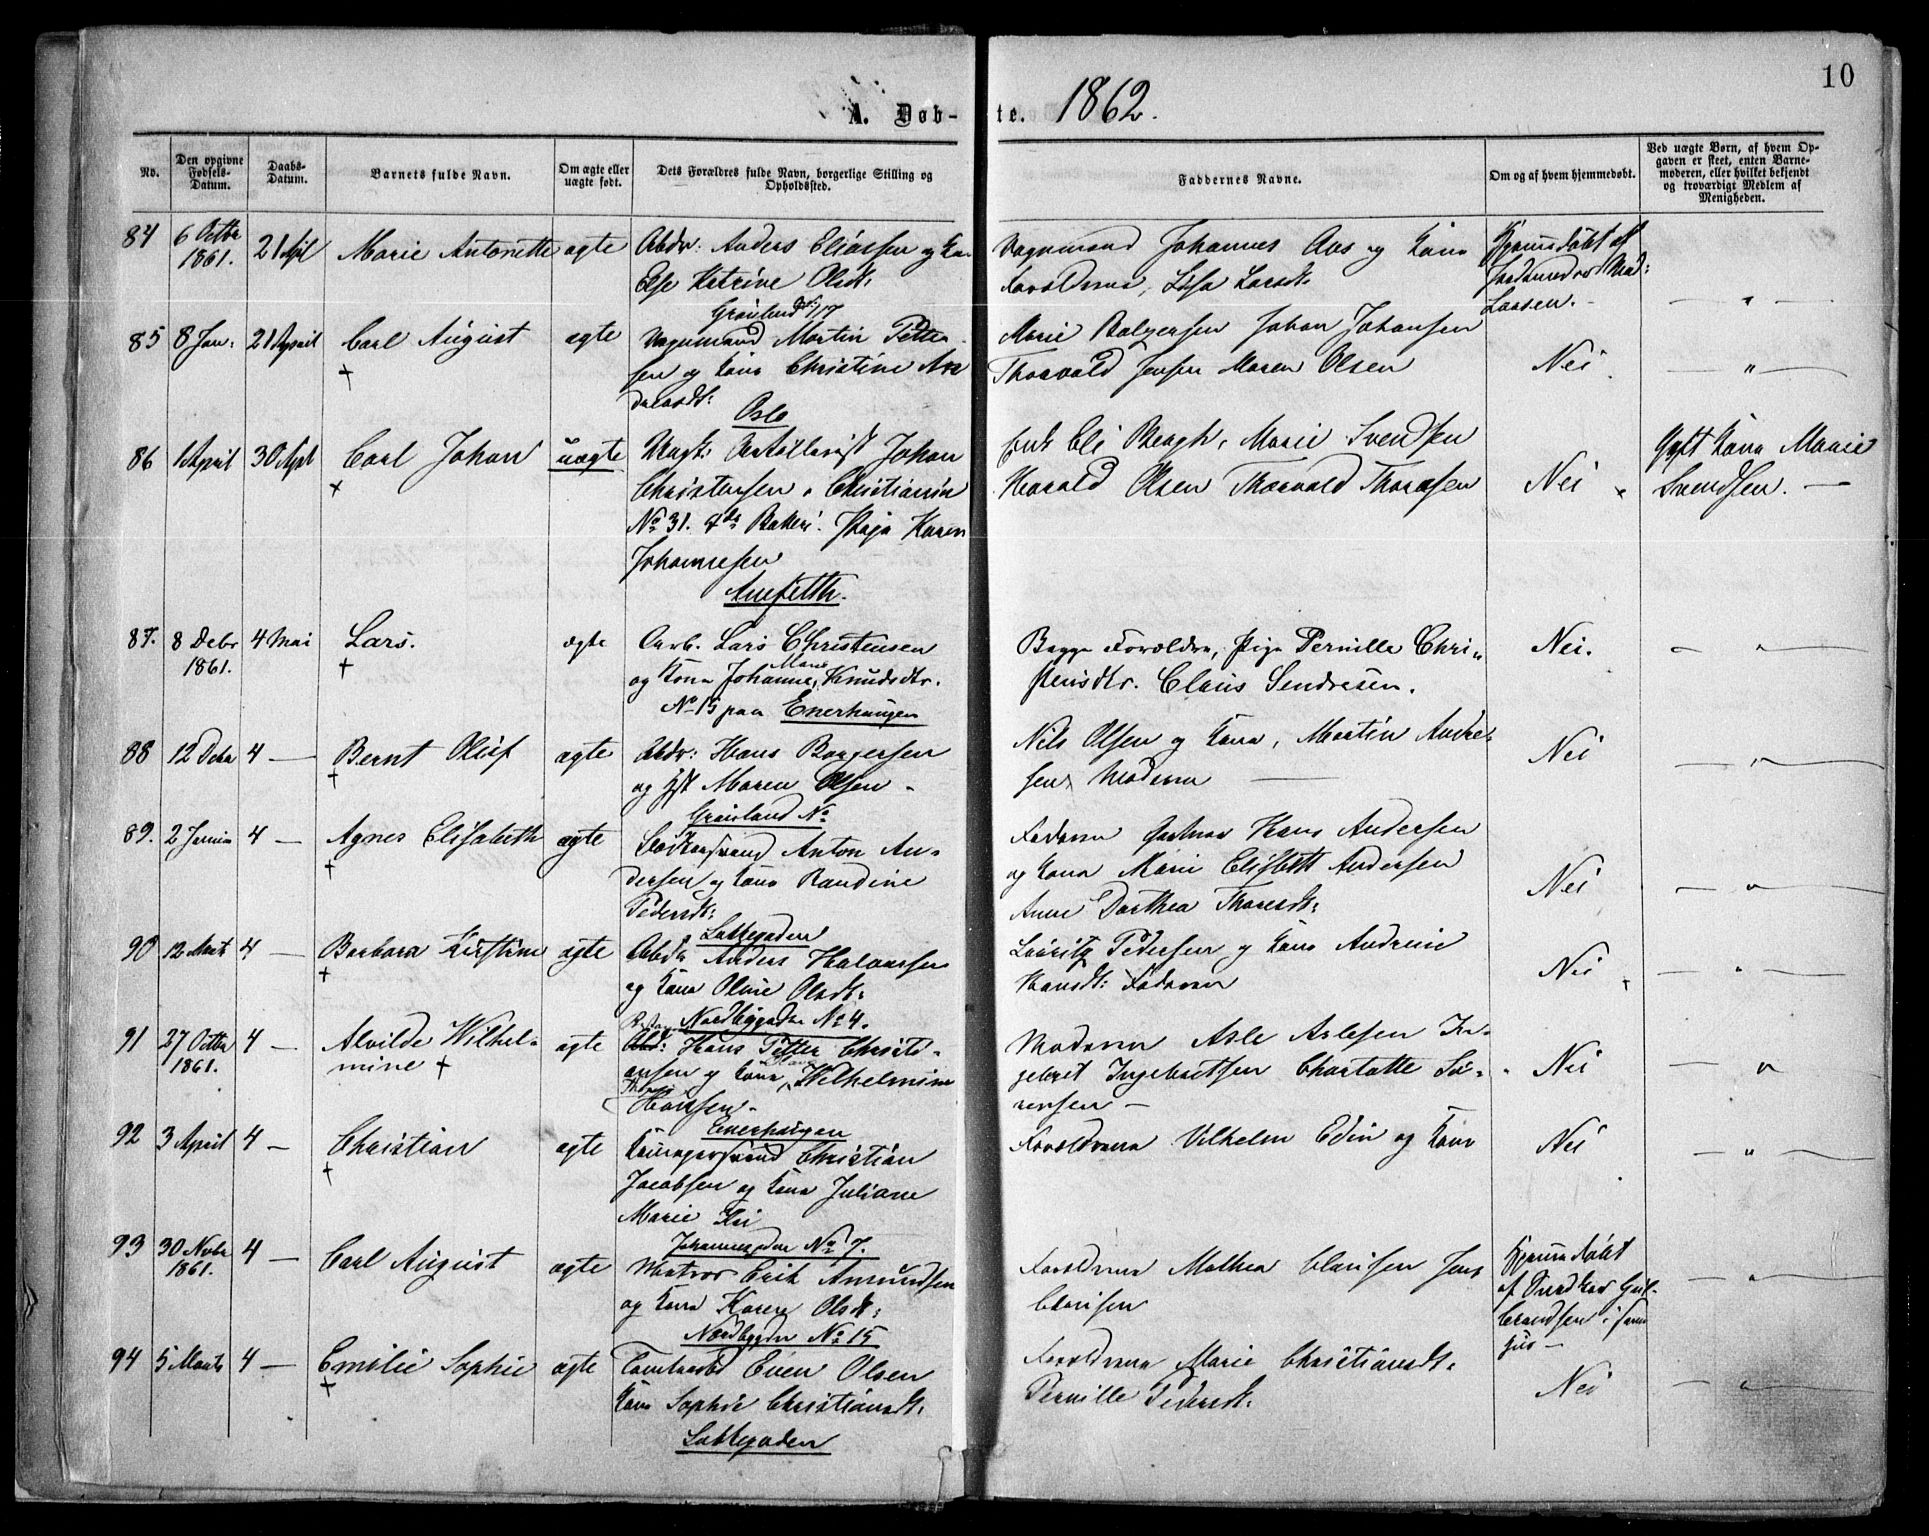 10
A. Døb-te. 1862.
No.
Den opgivne Fødsels-Datum.
Daabs-Datum.
Barnets fulde Navn.
Om ægte eller uægte født.
Dets Forældres fulde Navn, borgerlige Stilling og Opholdssted.
Faddernes Navne.
Om og af hvem hjemmedøbt.
Ved uægte Børn, af hvem Opgaven er skeet, enten Barnemoderen, eller hvilket bekjendt og troværdigt Medlem af Menigheden.
84 6 Octbr 1861. 21 Apl Marie Antonette ægte Arbdr: Anders Eliassen og
Else Katrine Olsdt:
Grønland 17
Johannes Aas og Kone
Forældrene, Lisa Larsdt:
Hjemmedøbt af
Jordemoder Mad:
Larsen.
85 8 Jan: 21 April Carl August ægte Vognmand Martin Petter-
sen og Kone Christine
Oslo
Marie Balzersen Johan Johansen
Thorvald Jensen Maren Olsen
Nei
86 1 April 30 Apl Carl Johan uægte Ungk: Artillerist Johan
Christensen, Christianin
No 31. 4de Batteri. Pige Karen
Johannesen
Eli Bergh, Marie Svendsen
Harald Olsen Thorvald Thoresen
Nei
Gift Kone Marie
Svendsen.
87. 8 Debr 1861. 4 Mai Lars. ægte Arb. Lars Christensen
og Kone Johanne Marie Knudsdtr.
No 15 paa Enerhaugen
Begge Forældre, Pige Pernille Chri-
stensdtr. Claus Sendresen.
Nei.
88 12 Debr 4 — Bernt Oluf ægte Arbdr: Hans Borgersen
og Maren Olsen
Grønland No
Nils Olsen og Kone, Martin Andre-
sen, Moderen
Nei
89. 2 4 — Agnes Elisabeth ægte Anton An-
dersen og Kone Randine
Pedersdt:
Lakkegaden
Faderen Hans Andersen
og Kone Marie Elisbett Andersen
Anne Dorthea Thoresdt:
Nei
90 12 Marts 4 — Barbara Kirstine ægte Arbdr Anders Halvorsen
og Kone Oline Olsdt:
Nordbygaden No 4.
Lauritz Pedersen og Kone Andrine
Hansdt: Faderen
Nei
91 27 Octbr 1861. 4 — Alvilde Wilhel-
mine ægte Arbd: Hans Petter Christi-
ansen og Kone Wilhelmine
Hansen
Enerhaugen
Moderen Asle Aslesen In-
gebret Ingebretsen Charlotte Sø-
rensen
Nei
92 3 April 4 — Christian ægte Christian
Jacobsen og Kone Juliane
Marie
No 7.
Forældrene Vilhelm Edin og Kone
Nei
93 30 Nvbr 1861. 4 — Carl August ægte Matros Erik Amundsen
og Kone Karen Olsdt:
Nordbygdn No 15
Forældrene Mathea Clausen Jens
Clausen
Hjemmedøbt
af Gul-
brandsen
94 5 Marts 4 — Emilie Sophie ægte Even Olsen
Kone Sophie Christiansdt:
Lakkegaden
Forældrene Marie Christiansdt:
Pernille Pedersdt:
Nei